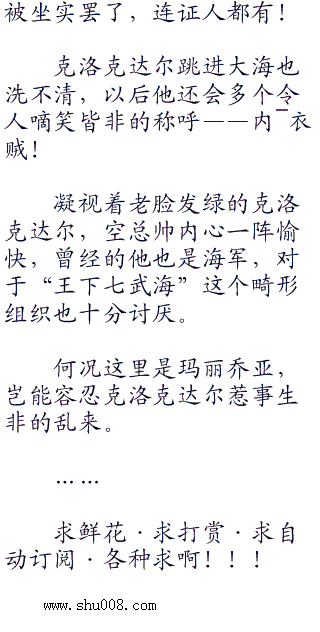 被坐实罢了，连证人都有！
克洛克达尔跳进大海也
洗不清，以后他还会多个令
人嘀笑皆非的称呼——内¯衣
贼！
凝视着老脸发绿的克洛
克达尔，空总帅内心一阵愉
快，曾经的他也是海军，对
于“王下七武海”这个畸形
组织也十分讨厌。
何况这里是玛丽乔亚，
岂能容忍克洛克达尔惹事生
非的乱来。
……
求鲜花·求打赏·求自
动订阅·各种求啊！！！
www.shu008.com